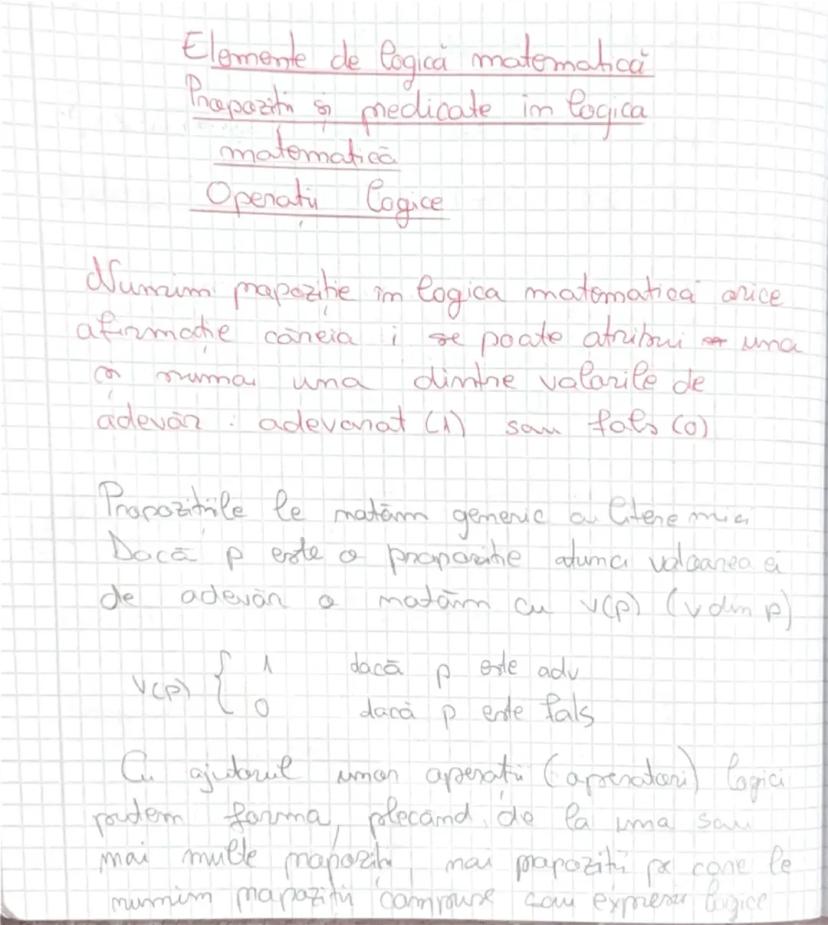 Elemente de logică matematică
Propoziții și predicate în logica
matematică
Operații logice
Numim propoziție în logica matematică orice
afirmație căreia i se poate atribui una
și numai una dintre valorile de
adevăr : adevarat (1) sau fals (0)
Propozițiile le notăm generic cu litere mici
Dacă p este o propoziție atunci valoarea ei
de adevăr o notăm cu v(p) (v din p)
v(p) { 1 dacă p este adv
0 dacă p este fals
Cu ajutorul unor operații (operatori) logici
putem forma, plecând de la una sau
mai multe propoziții, mai propoziții pe care le
numim propoziții compuse sau expresii logice